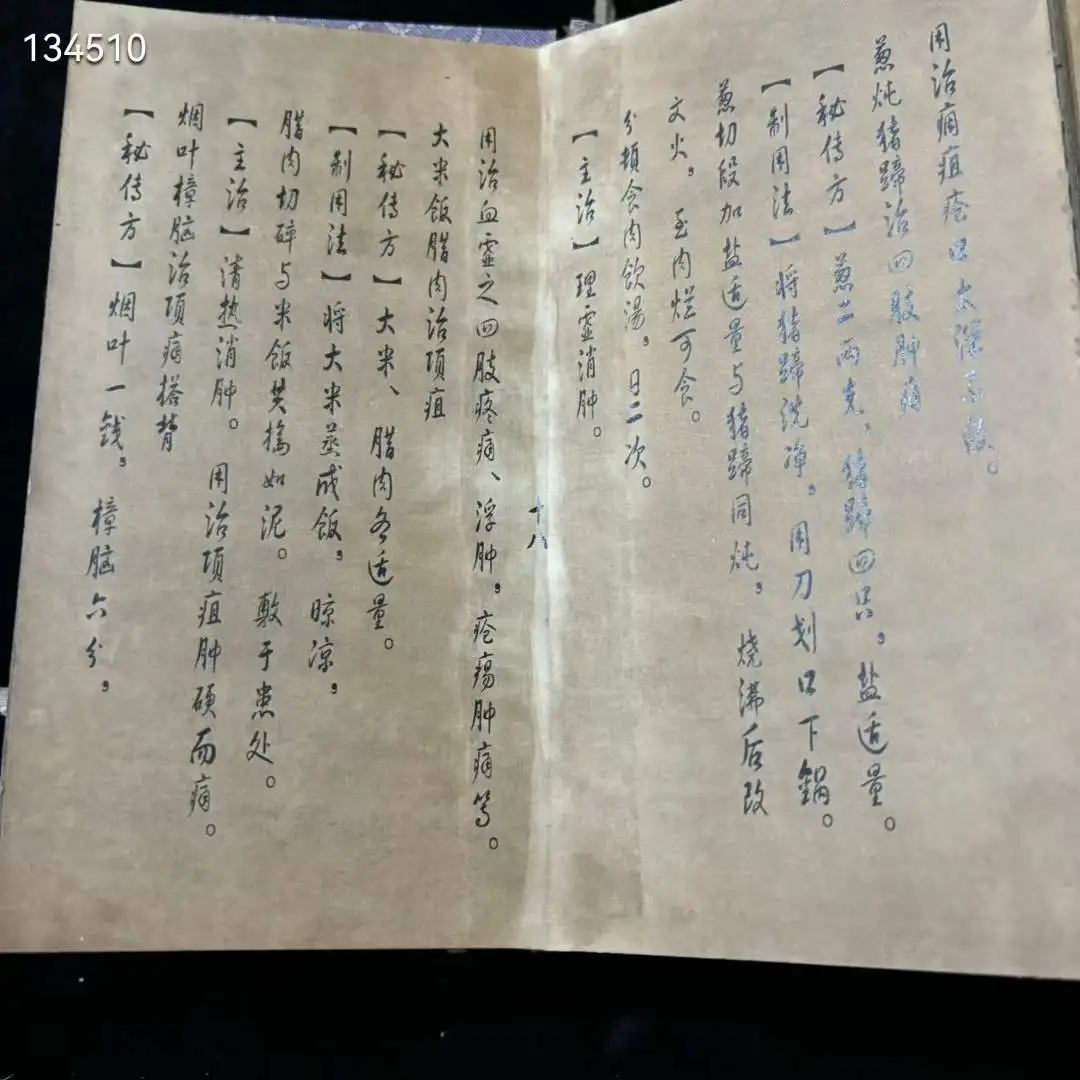 134510
用治痈疽疮口太深不敛。
葱炖猪蹄治四肢肿痛
【秘传方】葱二两克、猪蹄四只,盐适量。
【制用法】将猪蹄洗净,用刀划口下锅。
葱切段加盐适量与猪蹄同炖,烧沸后改
文火,至肉烂可食。
分顿食肉饮汤,日二次。
【主治】理虚消肿。
十八
用治血虚之四肢疼痛、浮肿,疮疡肿痛等。
大米饭腊肉治项疽
【秘传方】大米、腊肉各适量。
【制用法】将大米蒸成饭,晾凉,
腊肉切碎与米饭共捣如泥。敷于患处。
【主治】清热消肿。用治项疽肿硕而痛。
烟叶樟脑治项痛搭背
【秘传方】烟叶一钱,樟脑六分,